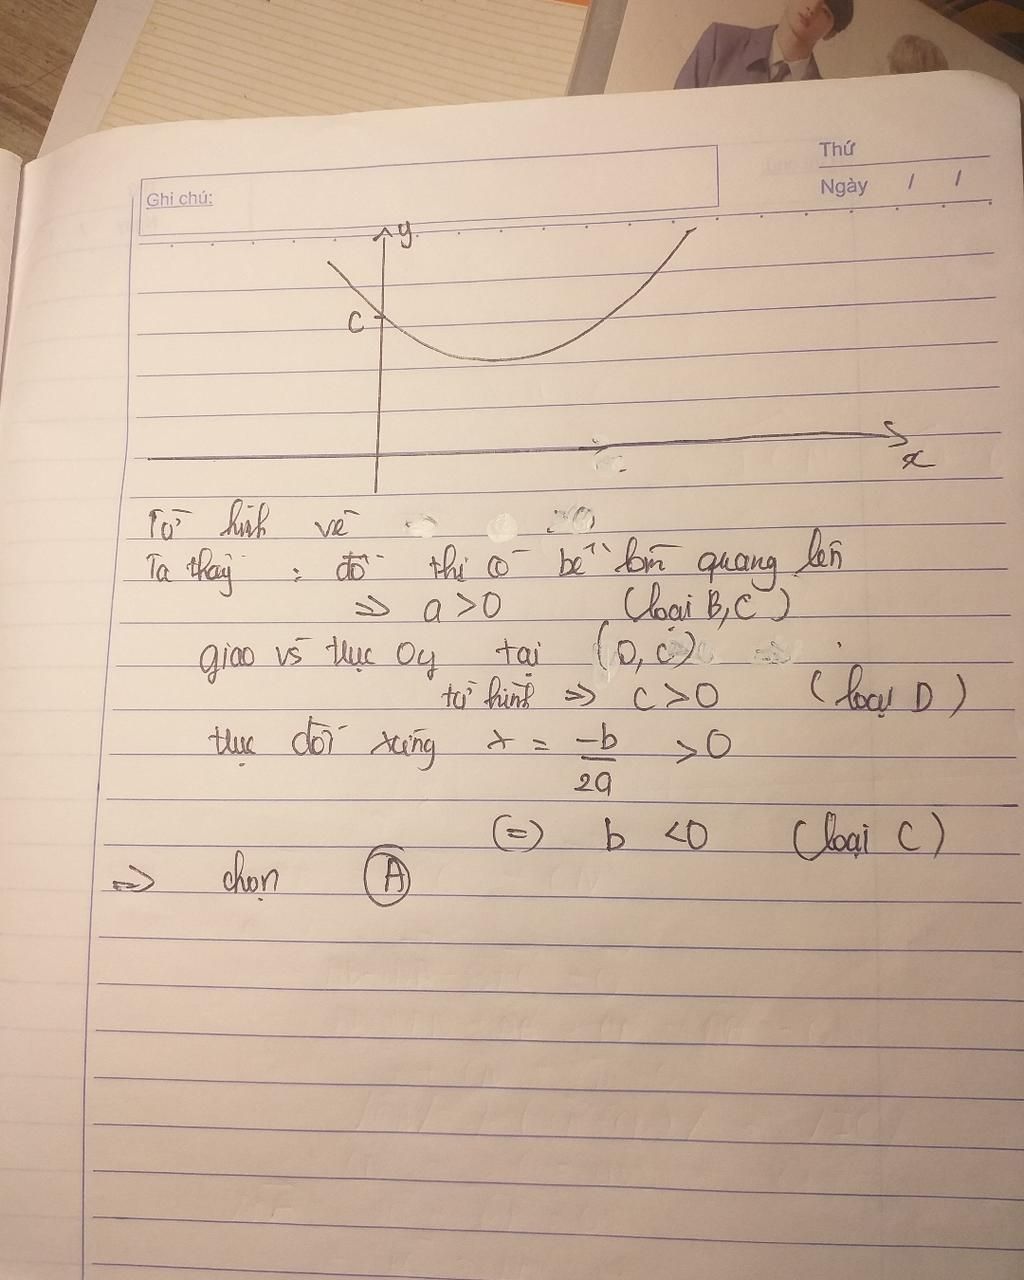 Thứ
Ghi chú:
Ngày / /
y
C
x
Từ hình vẽ
Ta thấy : đồ thị có bề lõm quang lên
=> a > 0 (loại B, C)
giao vs trục Oy tại (0, c)
từ hình => c > 0 (loại D)
trục đối xứng x = -b/2a > 0
(=) b < 0 (loại C)
=> chọn A